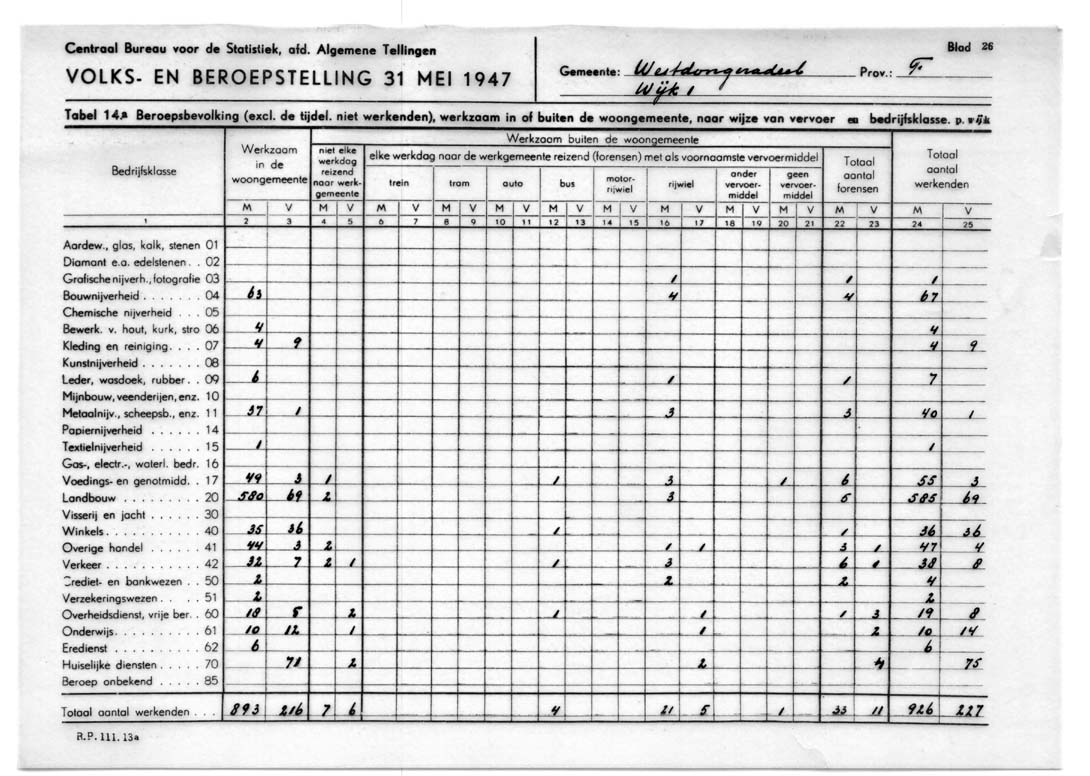 Centraal Bureau voor de Statistiek, afd. Algemene Tellingen
VOLKS- EN BEROEPSTELLING 31 MEI 1947
Gemeente: Westdongeradeel Prov.: F.
Wijk 1
Blad 26
Tabel 14.a Beroepsbevolking (excl. de tijdel. niet werkenden), werkzaam in of buiten de woongemeente, naar wijze van vervoer en bedrijfsklasse. p. wijk
Bedrijfsklasse | Werkzaam in de woongemeente | Werkzaam buiten de woongemeente | Totaal aantal werkenden
niet elke werkdag reizend naar werkgemeente | elke werkdag naar de werkgemeente reizend (forensen) met als voornaamste vervoermiddel | Totaal aantal forensen
trein | tram | auto | bus | motorrijwiel | rijwiel | ander vervoermiddel | geen vervoermiddel
M V M V M V M V M V M V M V M V M V M V M V M V
1 2 3 4 5 6 7 8 9 10 11 12 13 14 15 16 17 18 19 20 21 22 23 24 25
Aardew., glas, kalk, stenen 01
Diamant e.a. edelstenen . . 02
Grafische nijverh., fotografie 03 1 1 1
Bouwnijverheid . . . . . . . 04 63 4 4 67
Chemische nijverheid . . . 05
Bewerk. v. hout, kurk, stro 06 4 4
Kleding en reiniging. . . . 07 4 9 4 9
Kunstnijverheid . . . . . . 08
Leder, wasdoek, rubber. . 09 6 1 1 7
Mijnbouw, veenderijen, enz. 10
Metaalnijv., scheepsb., enz. 11 37 1 3 3 40 1
Papiernijverheid . . . . . . 14
Textielnijverheid . . . . . . 15 1 1
Gas-, electr.-, waterl. bedr. 16
Voedings- en genotmidd. . 17 49 3 1 1 3 1 6 55 3
Landbouw . . . . . . . . . 20 580 69 2 3 5 585 69
Visserij en jacht . . . . . . 30
Winkels. . . . . . . . . . . 40 35 36 1 1 36 36
Overige handel . . . . . . 41 44 3 2 1 1 3 1 47 4
Verkeer . . . . . . . . . . 42 32 7 2 1 1 3 6 1 38 8
Crediet- en bankwezen . . 50 2 2 2 4
Verzekeringswezen. . . . 51 2 2
Overheidsdienst, vrije ber. . 60 18 5 2 1 1 1 3 19 8
Onderwijs. . . . . . . . . . 61 10 12 1 1 2 10 14
Eredienst . . . . . . . . . 62 6 6
Huiselijke diensten . . . . . 70 71 2 2 4 75
Beroep onbekend . . . . . 85
Totaal aantal werkenden . . . 893 216 7 6 4 21 5 1 33 11 926 227
R.P. 111.13a